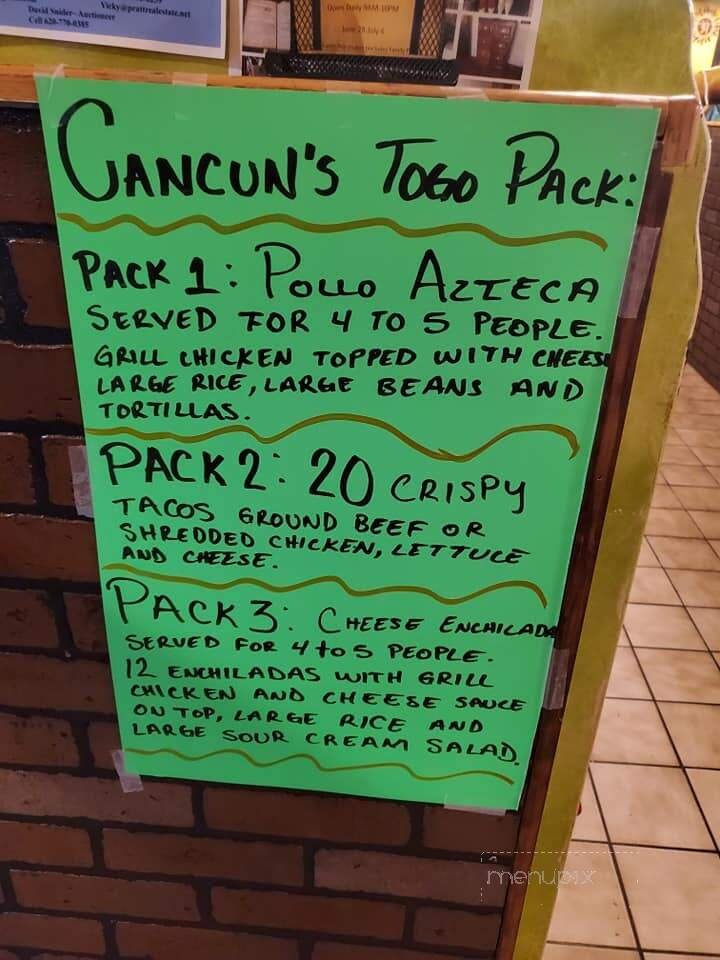 Vicky@prattrealestate.net
David Snider- Auctioneer
Cell 620-770-0385
Open Daily 9AM-10PM
June 28 July 6
CANCUN'S TOGO PACK:
PACK 1: POLLO AZTECA
SERVED FOR 4 TO 5 PEOPLE.
GRILL CHICKEN TOPPED WITH CHEESE
LARGE RICE, LARGE BEANS AND
TORTILLAS.
PACK 2: 20 CRISPY
TACOS GROUND BEEF OR
SHREDDED CHICKEN, LETTUCE
AND CHEESE.
PACK 3: CHEESE ENCHILADA
SERVED FOR 4 to 5 PEOPLE.
12 ENCHILADAS WITH GRILL
CHICKEN AND CHEESE SAUCE
ON TOP, LARGE RICE AND
LARGE SOUR CREAM SALAD.
menupix